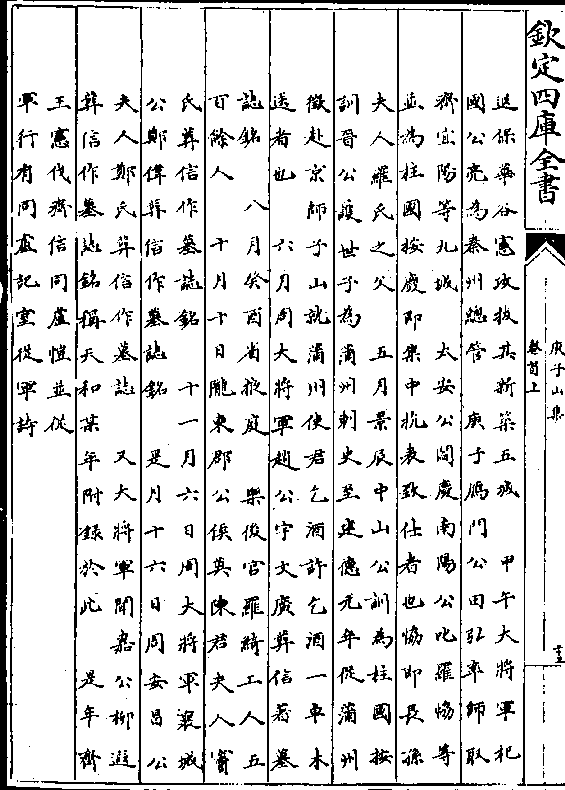 欽定四庫全書
庾子山集
卷首上
退保華谷憲攻拔其新築五城　甲午大將軍杞
國公亮為秦州總管　庚子鴈門公田弘率師取
齊宜陽等九城　太安公閻慶南陽公叱羅協等
並為柱國按慶即集中抗表致仕者也協即長孫
夫人羅氏之父　五月景辰中山公訓為柱國按
訓晉公護世子為蒲州刺史至建德元年從蒲州
徵赴京師子山就蒲州使君乞酒許乞酒一車木
送者也　六月周大將軍趙公宇文廣葬信著墓
誌銘　八月癸酉省掖庭　樂後宮羅綺工人五
百餘人　十月十日隴東郡公侯莫陳君夫人竇
氏葬信作墓誌銘　十一月六日周大將軍襄城
公鄭偉葬信作墓誌銘　是月十六日周安昌公
夫人鄭氏葬信作墓誌　又大將軍聞喜公柳遐
葬信作墓誌銘稱天和某年附錄於此　是年齊
王憲伐齊信同盧愷並從
軍行有同盧記室從軍詩